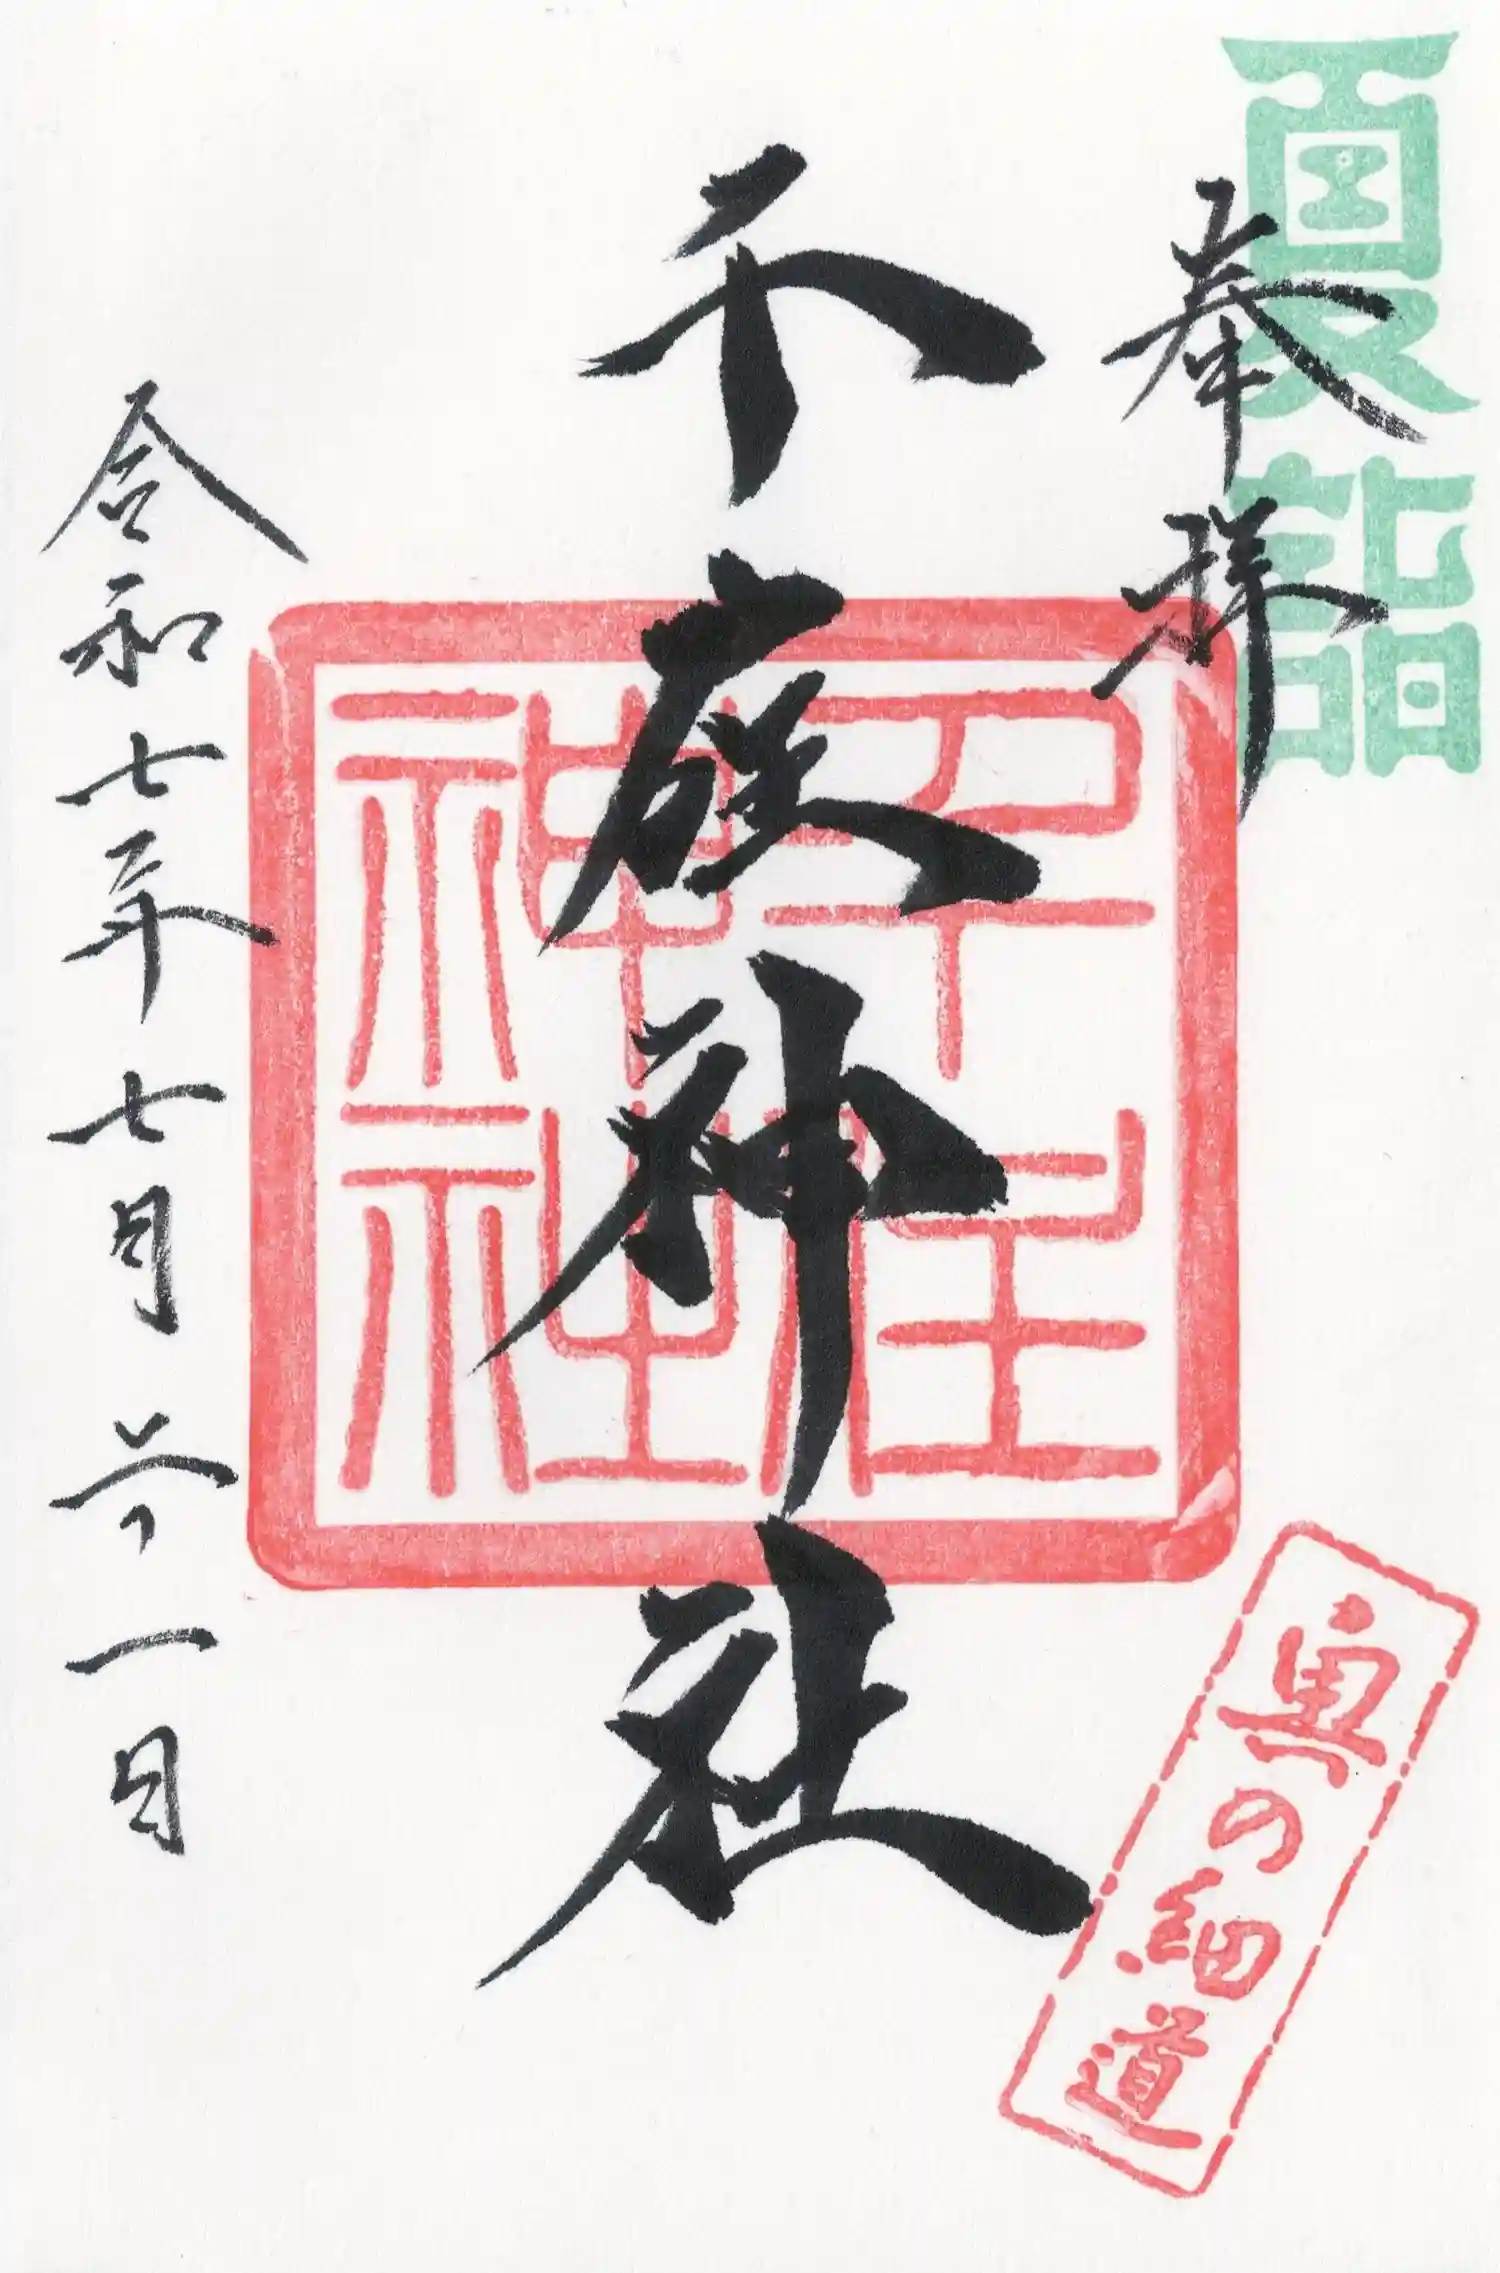 夏詣
奉拝
神社
令和七年七月 一日
神社
奥の細道